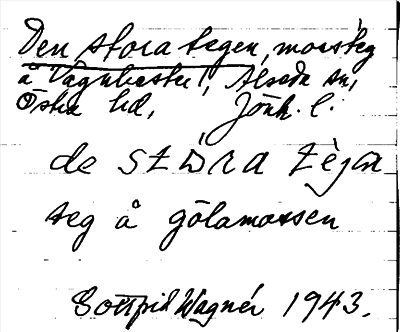 Den stora tegen, mossteg
å Vagnhester, Alseda sn,
Östra hd, Jönk. l.
de stóra tègan
teg å gölamossen
Gottfrid Wagnér 1943.